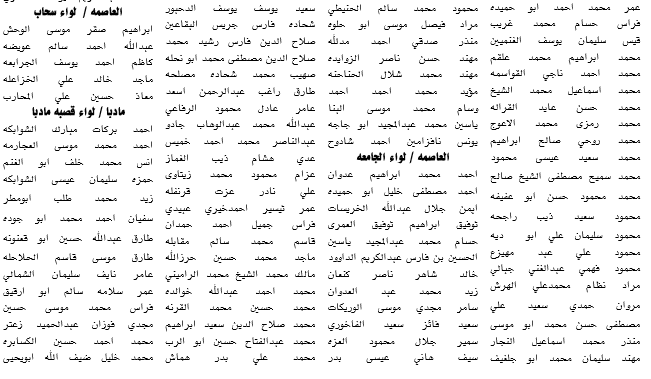 عمر محمد احمد ابو حميده
فراس حسام محمد غريب
قيس سليمان يوسف الغنميين
محمد ابراهيم محمد علقم
محمد احمد ناجي القواسمه
محمد اسماعيل محمد الشيخ
محمد حسن عايد القراله
محمد رمزي محمد الاعوج
محمد روحي صالح ابراهيم
محمد سعيد عيسى محمود
محمد سميح مصطفى الشيخ صالح
محمد محمود حسن ابو عفيفه
محمود سعيد ذيب راجحه
محمود سليمان علي ابو ديه
محمود علي عبد مهيزع
محمود فهمي عبدالغني جبالي
مراد نظام محمدعلي الهرش
مروان حمدي سعيد علي
مصطفى حسن محمد ابو موسى
منذر محمد اسماعيل النجار
مهند سليمان محمد ابو جلغيف
محمود محمد سالم الحنيطي
مراد فيصل موسى ابو حلوه
منذر صدقي احمد مدلله
مهند حسن ناصر الزوايده
مهند محمد شلال الحناحنه
مؤيد محمد احمد احمد
وسام محمد موسى البنا
ياسين محمد عبدالمجيد ابو جاجه
يونس نافزامين احمد شادوح
العاصمه / لواء الجامعه
احمد محمد ابراهيم عدوان
احمد مصطفى خليل ابو حميده
ايمن جلال عبدالله الخريسات
توفيق ابراهيم توفيق العمرى
حسام محمد عبدالمجيد ياسين
الحسين بن فارس عبدالكريم الداوود
خالد شاهر ناصر كنعان
زيد محمد عبد العدوان
سامر مجدي موسى الوريكات
سعيد فائز سعيد الفاخوري
سمير جلال محمود العزه
سيف هاني عيسى بدر
سعيد يوسف يوسف الدحبور
شحاده فارس جريس البقاعين
صلاح الدين فارس رشيد محمد
صلاح الدين مصطفى محمد ابو نحله
صهيب محمد شحاده مصلحه
طارق راغب عبدالرحمن اسعد
عامر عادل محمود الرفاعي
عبدالله محمد عبدالوهاب جادو
عبدالناصر محمد احمد خميس
عدي هشام ذيب الغماز
عزام محمود محمد زيتاوى
علي نادر عزت قرنفله
عمر تيسير احمدخيري عبيدي
فراس جميل احمد حمدان
قاسم محمد سالم مقابله
ماجد محمد حسين حرزالله
مالك محمد الشيخ محمد الراميني
محمد احمد عبدالله خوالده
محمد حسين محمد القرنه
محمد صلاح الدين سعيد ابراهيم
محمد عبدالفتاح حسين ابو الرب
محمد علي بدر هماش
العاصمه / لواء سحاب
ابراهيم صقر موسى الوحش
عبدالله احمد سالم عويضه
كاظم احمد يوسف الجرابعه
ماجد خالد علي الخزاعله
معاذ حسين علي المحارب
مادبا / لواء قصبه مادبا
احمد بركات مبارك الشوابكه
احمد محمد موسى العجارمه
انس محمد خلف ابو الغنم
حمزه سليمان عيسى الشوابكه
زيد محمد طلب ابومطر
سفيان احمد محمد ابو جوده
طارق عبدالله حسين ابو قعنونه
طارق موسى قاسم الخلاحله
عامر نايف سليمان الشمالي
عمر سلامه سالم ابو ارقيق
فراس محمد موسى حسين
مجدي فوزان عبدالحميد زعتر
محمد احمد حسين الكسابره
محمد خليل ضيف الله ابويحيى